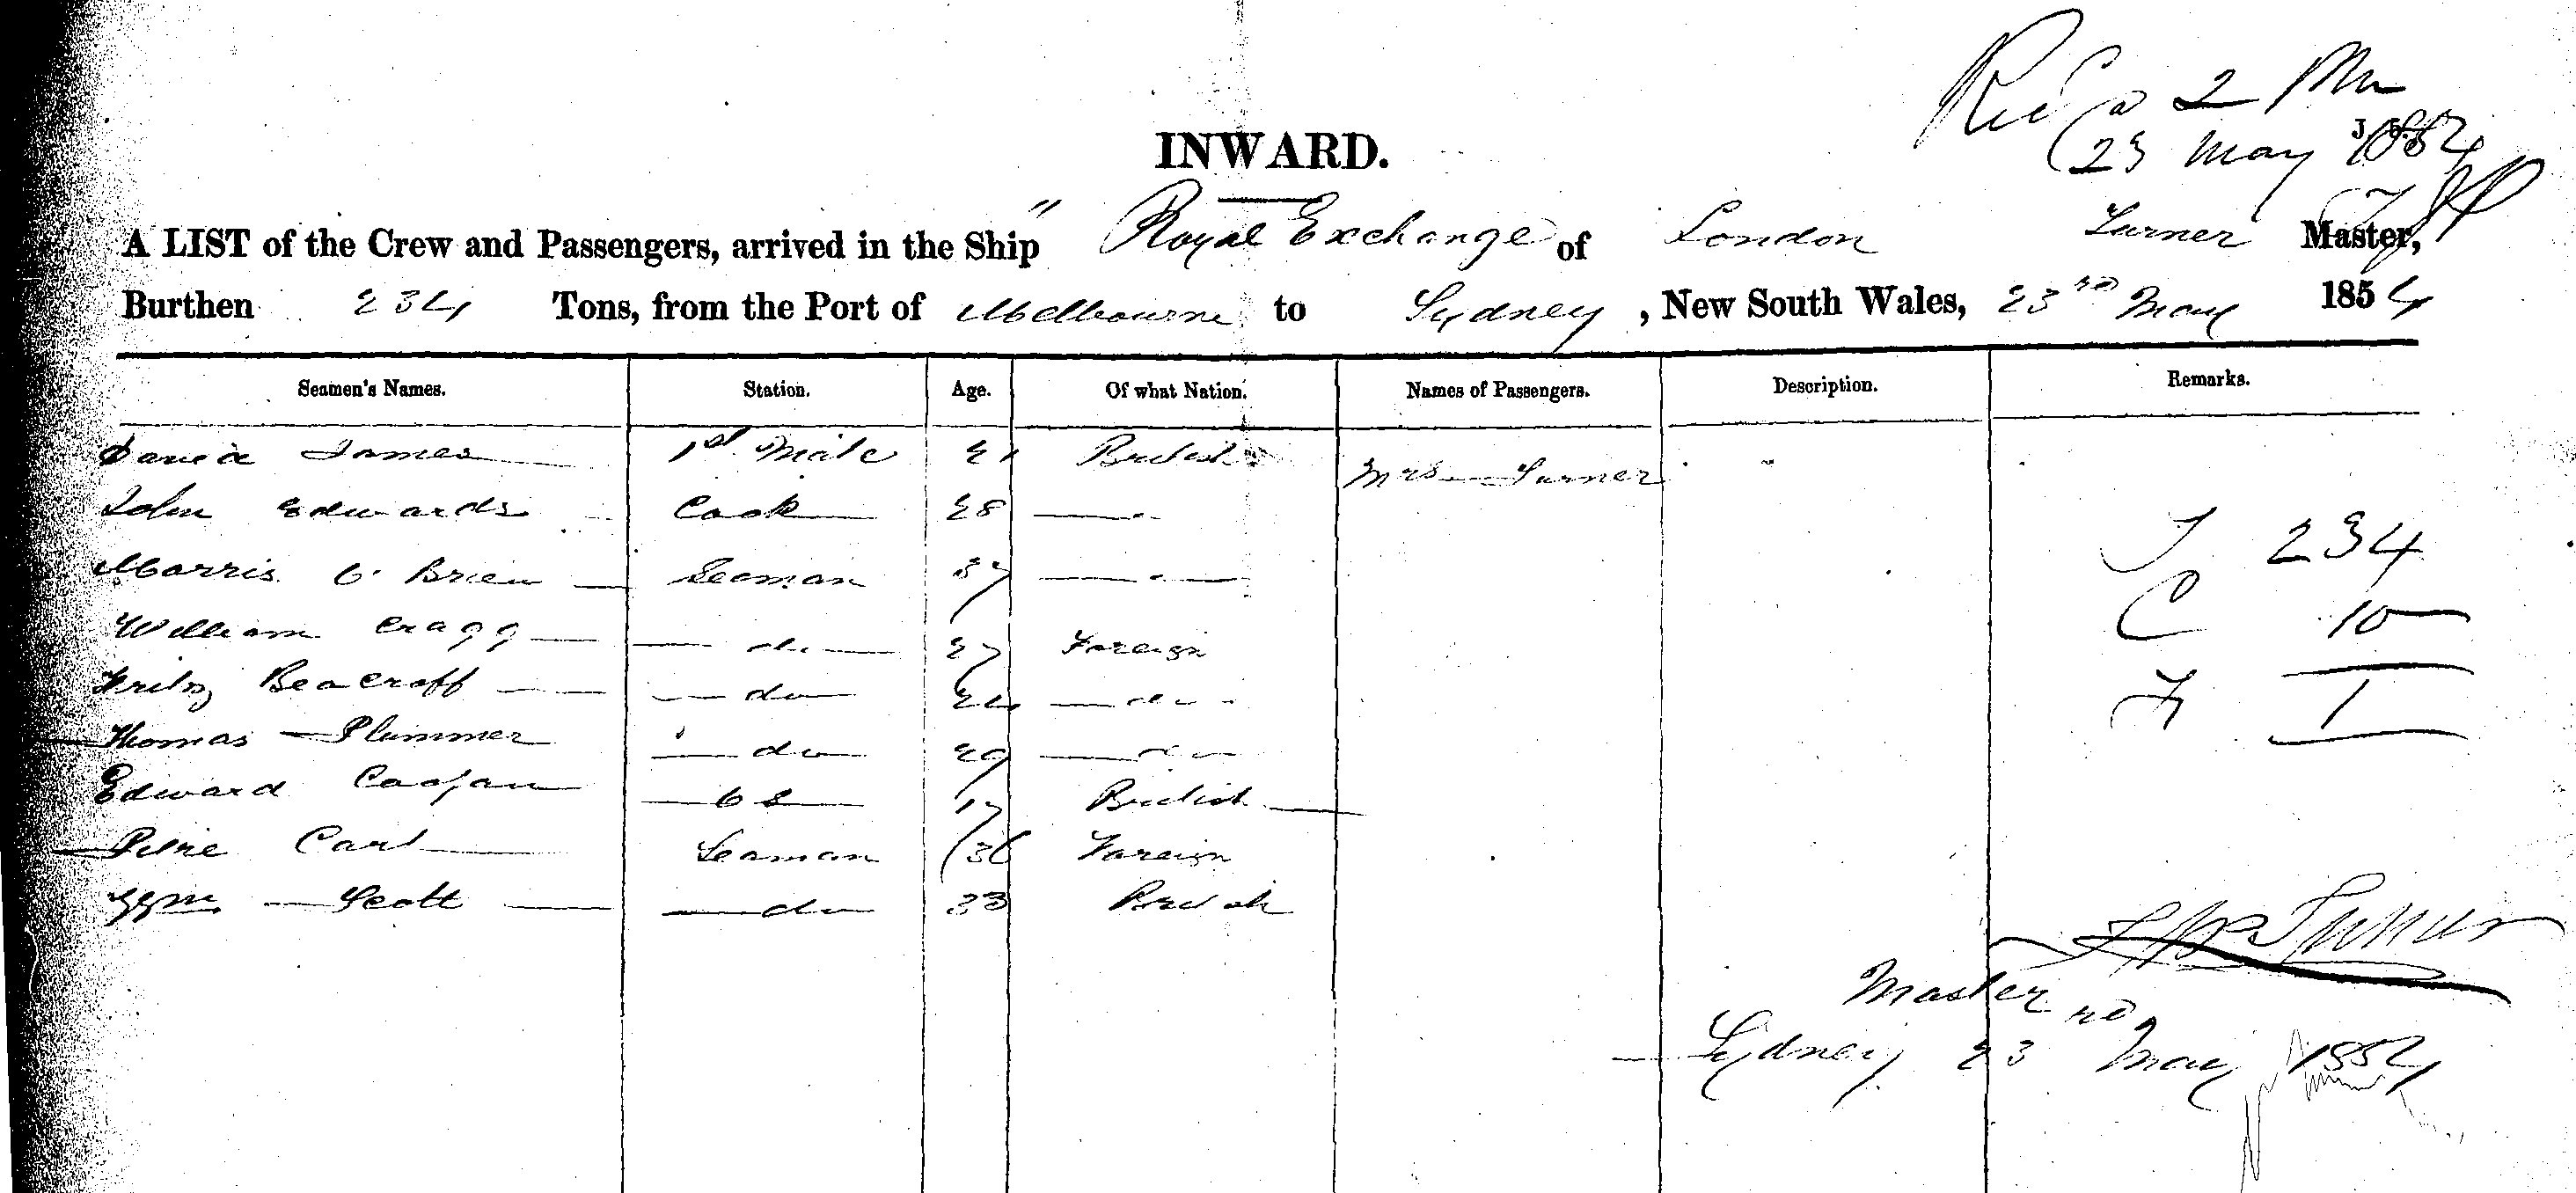 Recd 2 Pm
23 May 1854
INWARD.
A LIST of the Crew and Passengers, arrived in the Ship " Royal Exchange of London Turner Master,
Burthen 234 Tons, from the Port of Melbourne to Sydney, New South Wales, 23rd May 1854
Seamen's Names. Station. Age. Of what Nation. Names of Passengers. Description. Remarks.
David James 1st Mate 21 British Mrs Turner
John Edwards Cook 28 — " —
Morris O'Brien Seaman 37 — " — T 234
William Cragg do 27 Foreign C 10
Fritz Beacroff do 24 do F 1
Thomas Plummer do 29 do
Edward O S 17 British
Carl Seaman 36 Foreign
Scott do 33 British
Turner
Master
Sydney 23rd May 1854